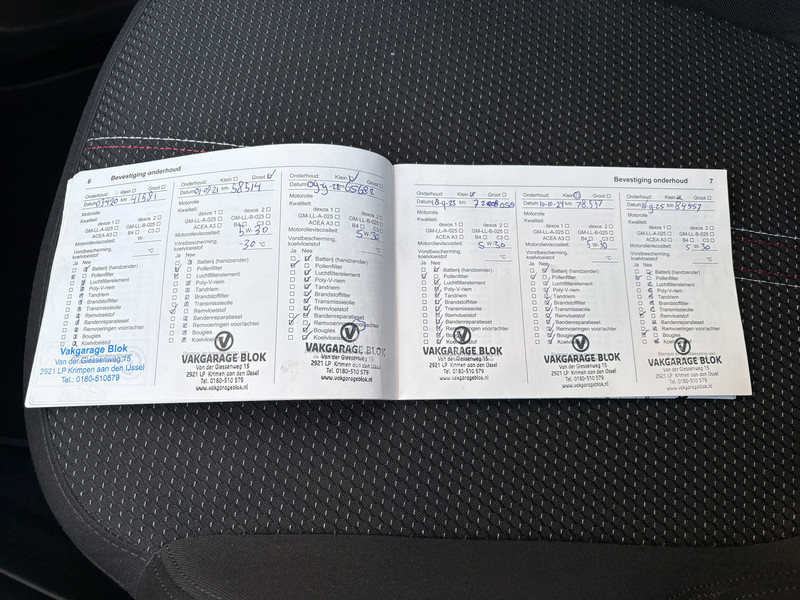 6 Bevestiging onderhoud
Onderhoud: Klein Groot
Datum km 41581
Motorolie
Kwaliteit:
dexos 1 dexos 2
GM-LL-A-025 GM-LL-B-025
ACEA A3 B4 C3
Motorolieviscositeit: W-
Vorstbescherming, koelvloeistof °C
Ja Nee
Batterij (handzender)
Pollenfilter
Luchtfilterelement
Poly-V-riem
Tandriem
Brandstoffilter
Transmissieolie
Remvloeistof
Bandenreparatieset
Remvoeringen voor/achter
Bougies
Koelvloeistof
Vakgarage Blok
Van der Giessenweg 15
2921 LP Krimpen aan den IJssel
Tel.: 0180-510579
Onderhoud: Klein Groot
Datum km 58514
Motorolie
Kwaliteit:
dexos 1 dexos 2
GM-LL-A-025 GM-LL-B-025
ACEA A3 B4 C3
Motorolieviscositeit: 5W-30
Vorstbescherming, koelvloeistof -30 °C
Ja Nee
Batterij (handzender)
Pollenfilter
Luchtfilterelement
Poly-V-riem
Tandriem
Brandstoffilter
Transmissieolie
Remvloeistof
Bandenreparatieset
Remvoeringen voor/achter
Bougies
Koelvloeistof
VAKGARAGE BLOK
Van der Giessenweg 15
2921 LP Krimpen aan den IJssel
Tel. 0180-510 579
www.vakgarageblok.nl
Onderhoud: Klein Groot
Datum 09-9-22 65682
Motorolie
Kwaliteit:
dexos 1 dexos 2
GM-LL-A-025 GM-LL-B-025
ACEA A3 B4 C3
Motorolieviscositeit: 5W-30
Vorstbescherming, koelvloeistof °C
Ja Nee
Batterij (handzender)
Pollenfilter
Luchtfilterelement
Poly-V-riem
Tandriem
Brandstoffilter
Transmissieolie
Remvloeistof
Bandenreparatieset
Remvoeringen voor/achter
Bougies
Koelvloeistof
VAKGARAGE BLOK
Van der Giessenweg 15
2921 LP Krimpen aan den IJssel
Tel. 0180-510 579
www.vakgarageblok.nl
Bevestiging onderhoud 7
Onderhoud: Klein Groot
Datum km
Motorolie
Kwaliteit:
dexos 1 dexos 2
GM-LL-A-025 GM-LL-B-025
ACEA A3 B4 C3
Motorolieviscositeit: 5W-30
Vorstbescherming, koelvloeistof °C
Ja Nee
Batterij (handzender)
Pollenfilter
Luchtfilterelement
Poly-V-riem
Tandriem
Brandstoffilter
Transmissieolie
Remvloeistof
Bandenreparatieset
Remvoeringen voor/achter
Bougies
Koelvloeistof
VAKGARAGE BLOK
Van der Giessenweg 15
2921 LP Krimpen aan den IJssel
Tel. 0180-510 579
www.vakgarageblok.nl
Onderhoud: Klein Groot
Datum 10-10-24 km 78.597
Motorolie
Kwaliteit:
dexos 1 dexos 2
GM-LL-A-025 GM-LL-B-025
ACEA A3 B4 C3
Motorolieviscositeit: 5W-30
Vorstbescherming, koelvloeistof °C
Ja Nee
Batterij (handzender)
Pollenfilter
Luchtfilterelement
Poly-V-riem
Tandriem
Brandstoffilter
Transmissieolie
Remvloeistof
Bandenreparatieset
Remvoeringen voor/achter
Bougies
Koelvloeistof
VAKGARAGE BLOK
Van der Giessenweg 15
2921 LP Krimpen aan den IJssel
Tel. 0180-510 579
www.vakgarageblok.nl
Onderhoud: Klein Groot
Datum km 84557
Motorolie
Kwaliteit:
dexos 1 dexos 2
GM-LL-A-025 GM-LL-B-025
ACEA A3 B4 C3
Motorolieviscositeit: 5W-30
Vorstbescherming, koelvloeistof °C
Ja Nee
Batterij (handzender)
Pollenfilter
Luchtfilterelement
Poly-V-riem
Tandriem
Brandstoffilter
Transmissieolie
Remvloeistof
Bandenreparatieset
Remvoeringen voor/achter
Bougies
Koelvloeistof
VAKGARAGE BLOK
Van der Giessenweg 15
2921 LP Krimpen aan den IJssel
Tel. 0180-510 579
www.vakgarageblok.nl